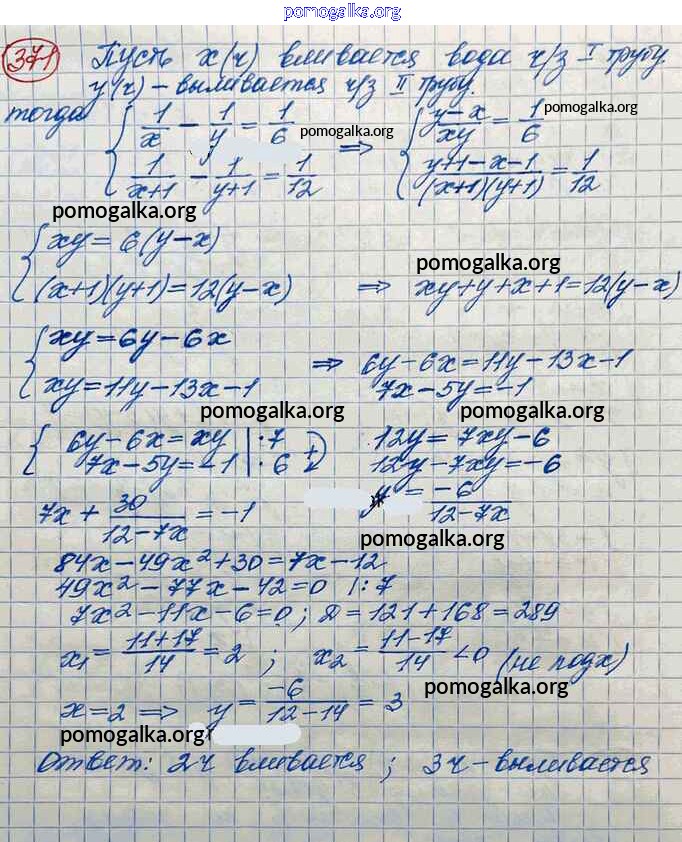 pomogalka.org
371 Пусть x(ч) вливается вода ч/з I трубу.
y(ч) – выливается ч/з II трубу.
тогда { 1/x − 1/y = 1/6 pomogalka.org ⇒ { (y−x)/xy = 1/6 pomogalka.org
1/(x+1) − 1/(y+1) = 1/12 (y+1−x−1)/((x+1)(y+1)) = 1/12
pomogalka.org
{ xy = 6(y−x)
pomogalka.org
(x+1)(y+1) = 12(y−x) ⇒ xy+y+x+1=12(y−x)
{ xy = 6y − 6x
xy = 11y − 13x − 1 ⇒ 6y − 6x = 11y − 13x − 1
7x − 5y = −1
pomogalka.org pomogalka.org
{ 6y − 6x = xy | ·7 12y = 7xy − 6
7x − 5y = −1 | ·6 + 12y − 7xy = −6
7x + 30/(12−7x) = −1 y = −6/(12−7x)
pomogalka.org
84x − 49x² + 30 = 7x − 12
49x² − 77x − 42 = 0 | :7
7x² − 11x − 6 = 0 ; D = 121 + 168 = 289
x₁ = (11+17)/14 = 2 ; x₂ = (11−17)/14 < 0 (не подх)
pomogalka.org
x = 2 ⇒ y = −6/(12−14) = 3
pomogalka.org
Ответ: 2ч вливается ; 3ч – выливается